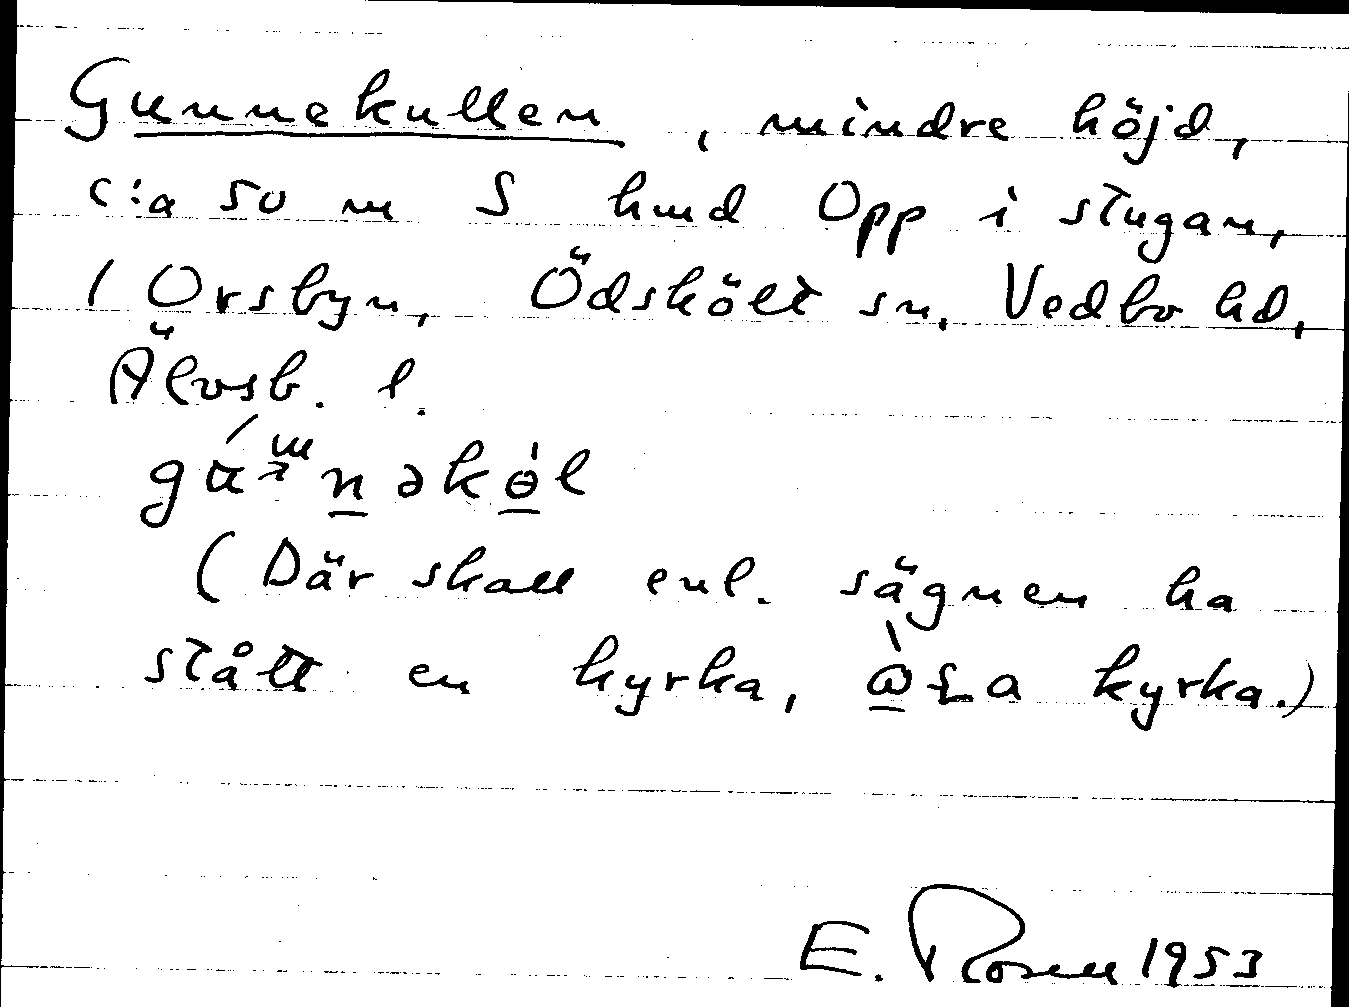 Gunnekullen, mindre höjd,
c:a 50 m S hmd Opp i stugan,
1 Orsbyn, Ödskölt sn, Vedbo hd,
Älvsb. l.
(Där skall enl. sägnen ha
stått en kyrka, kyrka.)
E. Rosell 1953